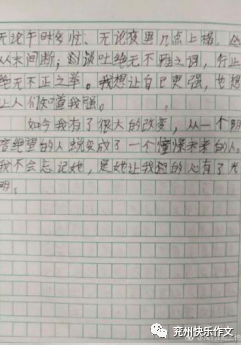 无论午时多忙、无论夜里几点上榻,
从未间断,到谈吐绝无不雅之词,行止
绝无不正之举。我想让自己更强,也想
让人们知道我强。
如今我有了很大的改变,从一个
绝望的人蜕变成了一个憧憬未来的人。
我不会忘记她,是她让我的心有了光
明。
兖州快乐作文